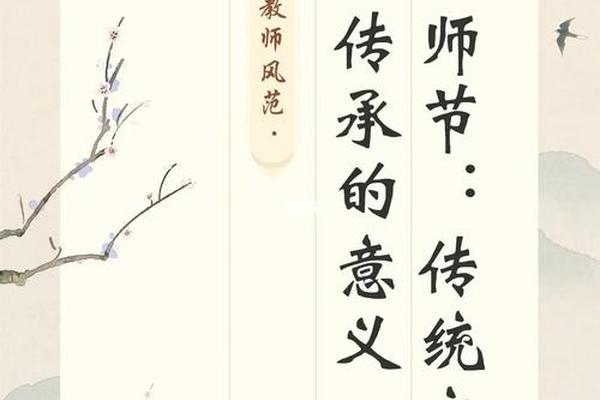 师节：传统
传承的意义
教师风范·